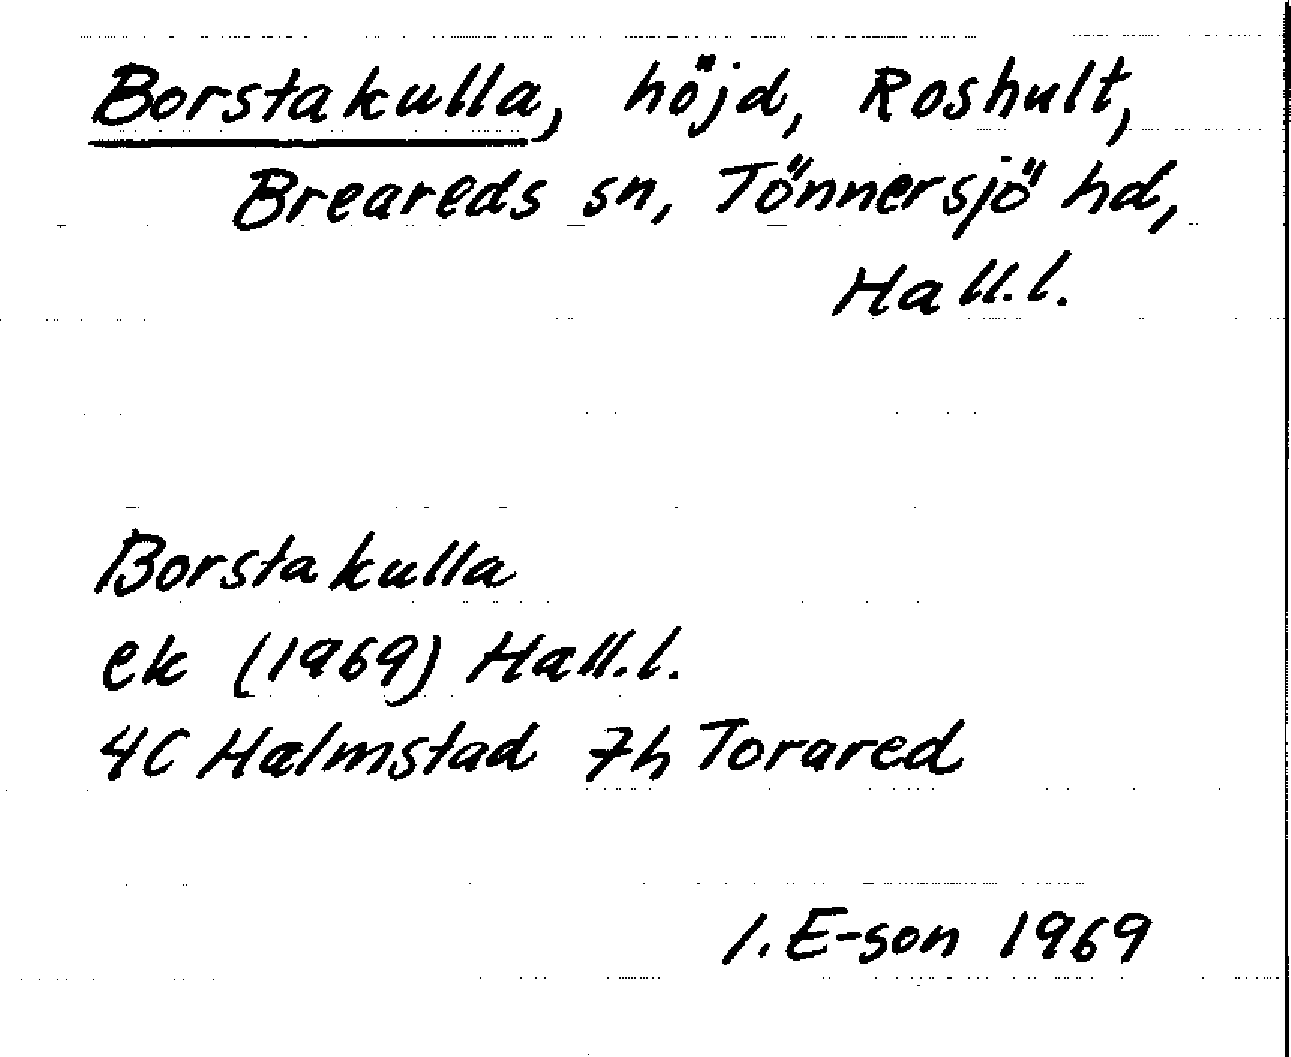 Borstakulla, höjd, Roshult,
Breareds sn, Tönnersjö hd,
Hall.l.
Borstakulla
ek (1969) Hall.l.
4C Halmstad 7h Torared
I. E-son 1969